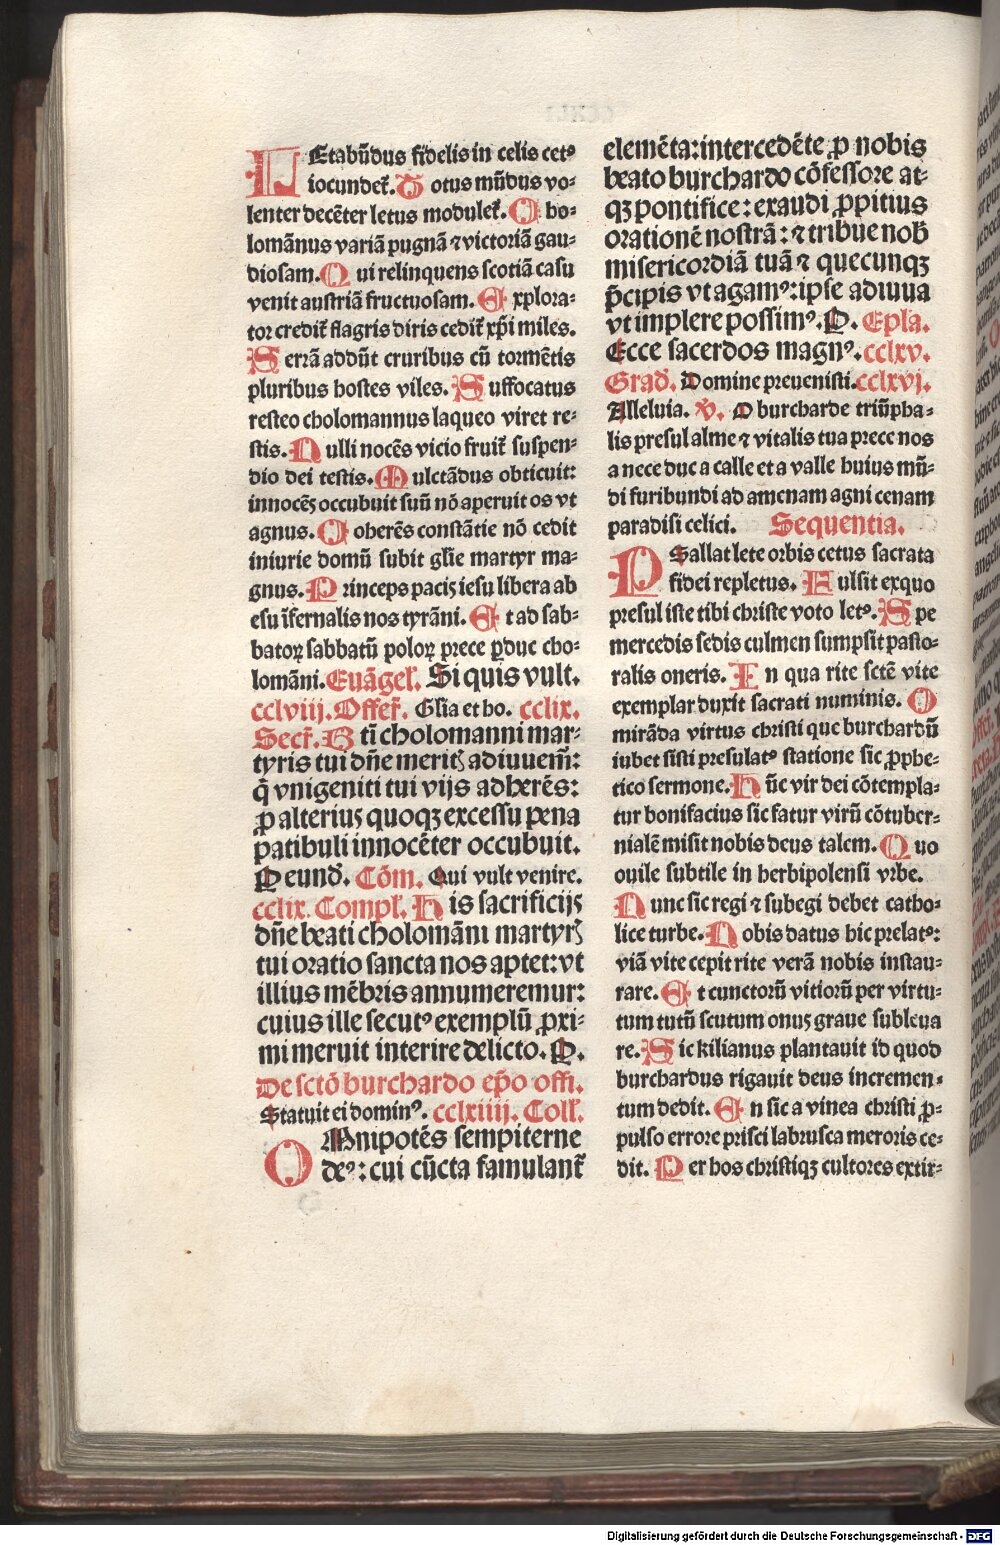 LEtabūdus fidelis in celis cetꝰ
iocundet᷑. Totus mūdus vo⸗
lenter decēter letus modulet᷑. Cho⸗
lomānus variā pugnā ⁊ victoriā gau⸗
diosam. Qui relinquens scotiā casu
venit austriā fructuosam. Explora⸗
tor credit᷑ flagris diris cedit᷑ xp̄i miles.
Serrā addūt cruribus cū tormētis
pluribus hostes viles. Suffocatus
resteo cholomannus laqueo viret re⸗
stis. Nulli nocēs vicio fruit᷑ suspen⸗
dio dei testis. Mulctādus obticuit:
innocēs occubuit suū nō aperuit os vt
agnus. Coherēs constātie nō cedit
iniurie domū subit gl̄ie martyr ma⸗
gnus. Princeps pacis iesu libera ab
esu īfernalis nos tyrāni. Et ad sab⸗
batoꝝ sabbatū poloꝝ prece ꝑduc cho⸗
lomāni. Euāgel᷑. Si quis vult.
cclviij. Offer᷑. Gl̄ia et ho. cclix.
Secr᷑. Btī cholomanni mar⸗
tyris tui dn̄e meritꝭ adiuuem̄:
q̄ vnigeniti tui vijs adherēs:
ꝓ alterius quoqꝫ excessu pena
patibuli innocēter occubuit.
Per eund᷑. Cōm. Qui vult venire.
cclix. Compl᷑. His sacrificijs
dn̄e beati cholomāni martyrꝭ
tui oratio sancta nos aptet: vt
illius mēbris annumeremur:
cuius ille secutꝰ exemplū ꝓxi⸗
mi meruit interire delicto. P.
De sctō burchardo ep̄o offi.
Statuit ei dominꝰ. cclxiiij. Coll᷑.
OMnipotēs sempiterne
deꝰ: cui cūcta famulant᷑
elemēta: intercedēte ꝓ nobis
beato burchardo cōfessore at⸗
qꝫ pontifice: exaudi ꝓpitius
orationē nostrā: ⁊ tribue nob̄
misericordiā tuā ⁊ quecunqꝫ
p̄cipis vt agamꝰ: ipse adiuua
vt implere possimꝰ. P. Epl̄a.
Ecce sacerdos magnꝰ. cclxv.
Grad᷑. Domine preuenisti. cclxvj.
Alleluia. ℣. O burcharde triūpha⸗
lis presul alme ⁊ vitalis tua prece nos
a nece duc a calle et a valle huius mū⸗
di furibundi ad amenam agni cenam
paradisi celici. Sequentia.
PSallat lete orbis cetus sacrata
fidei repletus. Fulsit exquo
presul iste tibi christe voto letꝰ. Spe
mercedis sedis culmen sumpsit pasto⸗
ralis oneris. In qua rite sctē vite
exemplar duxit sacrati numinis. O
mirāda virtus christi que burchardū
iubet sisti presulatꝰ statione sic ꝓphe⸗
tico sermone. Hūc vir dei cōtempla⸗
tur bonifacius sic fatur virū cōtuber⸗
nialē misit nobis deus talem. Quo
ouile subtile in herbipolensi vrbe.
Nunc sic regi ⁊ subegi debet catho⸗
lice turbe. Nobis datus hic prelatꝰ:
viā vite cepit rite verā nobis instau⸗
rare. Et cunctorū vitiorū per virtu⸗
tum tutū scutum onus graue subleua
re. Sic kilianus plantauit id quod
burchardus rigauit deus incremen⸗
tum dedit. En sic a vinea christi ꝓ⸗
pulso errore prisci labrusca meroris ce⸗
dit. Per hos christiqꝫ cultores extir⸗
Digitalisierung gefördert durch die Deutsche Forschungsgemeinschaft - DFG